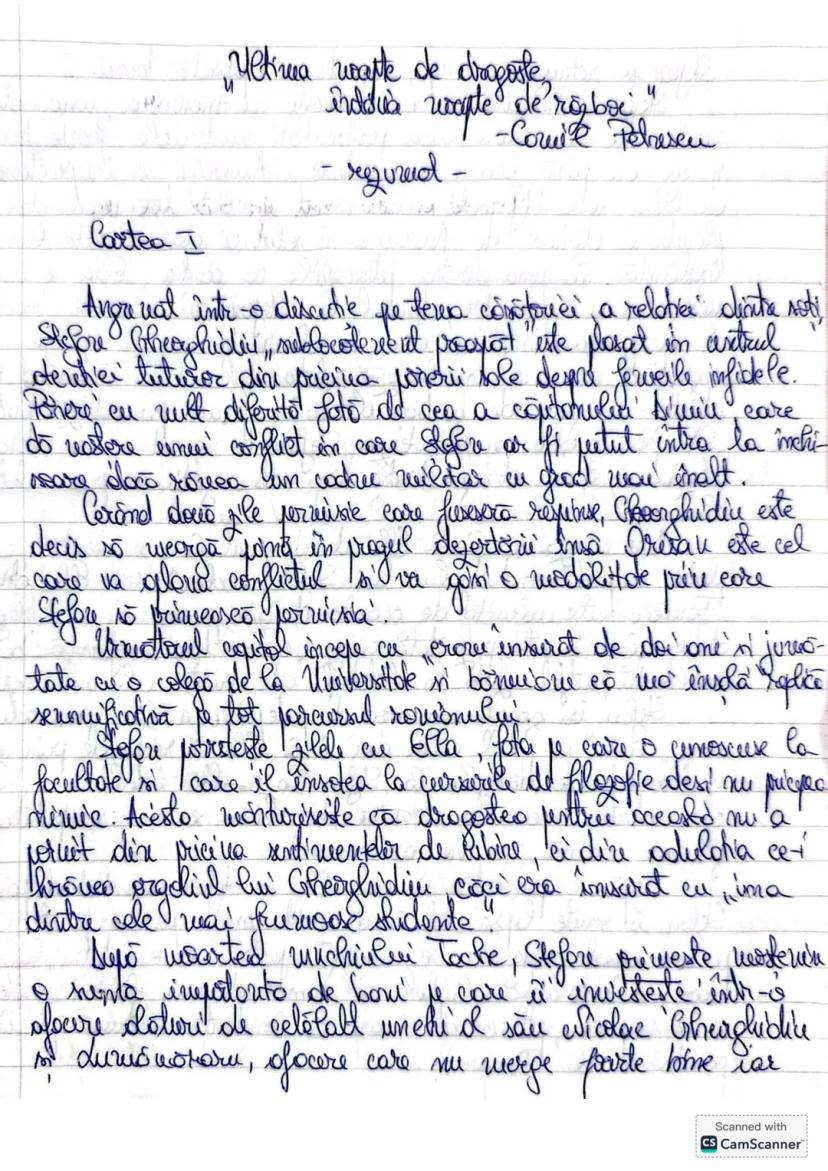 „Ultima noapte de dragoste,
întâia noapte de război"
-Camil Petrescu
- rezumat -
Cartea I
Angrenat într-o discuție pe tema căsătoriei, a relației dintre soți,
Ștefan Gheorghidiu „sublocotenent proaspăt" este plasat în centrul
atenției tuturor din pricina părerii sale despre femeile infidele.
Părere cu mult diferită față de cea a căpitanului Dimiu, care
dă naștere unui conflict în care Ștefan ar fi putut intra la închi-
soare dacă rănea un cadru militar cu grad mai înalt.
Cerând două zile permisie care fuseseră respinse, Gheorghidiu este
decis să meargă până în pragul dezertării însă Orișan este cel
care va aplana conflictul și va găsi o modalitate prin care
Ștefan să primească permisia.
Următorul capitol începe cu „eram însurat de doi ani și jumă-
tate cu o colegă de la Universitate și bănuiam că mă înșală" replică
semnificativă pe tot parcursul romanului.
Ștefan povestește zilele cu Ella, fata pe care o cunoscuse la
facultate și care îl însoțea la cursurile de filozofie deși nu pricepea
nimic. Acesta mărturisește că dragostea pentru aceasta nu a
pornit din pricina sentimentelor de iubire, ci din adulația ce-i
hrănea orgoliul lui Gheorghidiu căci era însurat cu „una
dintre cele mai frumoase studente"
După moartea unchiului Tache, Ștefan primește moștenire
o sumă importantă de bani pe care îi investește într-o
afacere alături de celălalt unchi al său Nicolae Gheorghidiu
și Lumânăraru, afacere care nu merge foarte bine iar
Scanned with
CS CamScanner